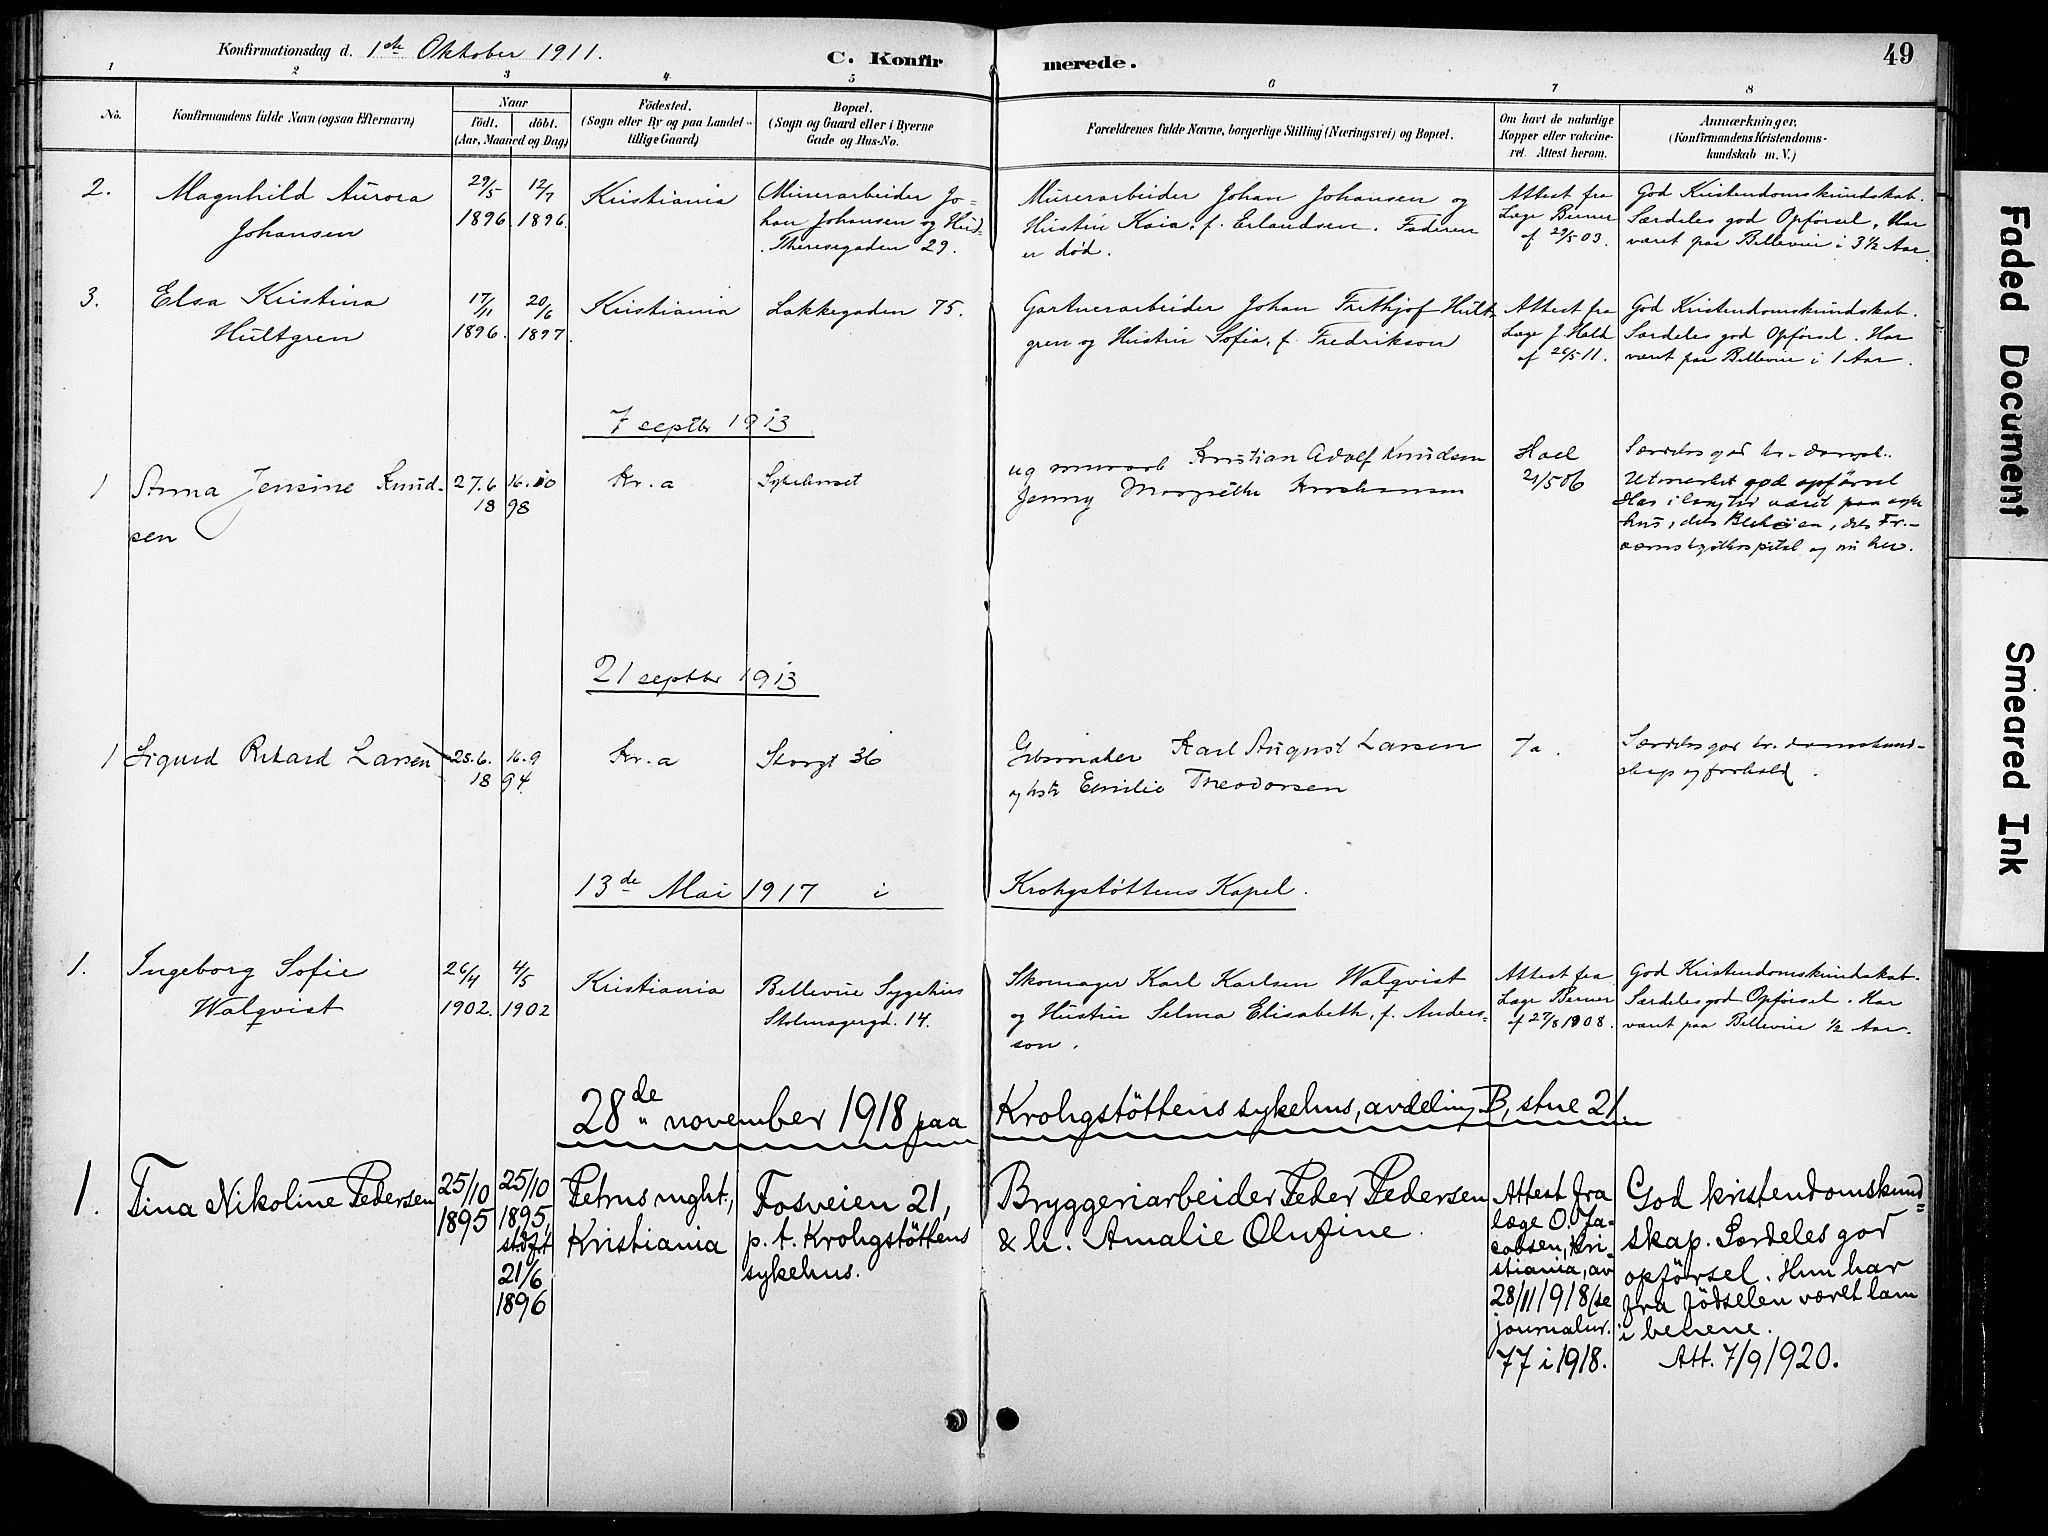 Konfirmationsdag d. 1ste Oktober 1911.
C. Konfirmerede.
49
1 2 3 4 5 6 7 8
No.
Konfirmandens fulde Navn (ogsaa Efternavn)
Naar
født. døbt.
(Aar, Maaned og Dag)
Fødested.
(Sogn eller By og paa Landet
tillige Gaard)
Bopæl.
(Sogn og Gaard eller i Byerne
Gade og Hus-No.
Forældrenes fulde Navne, borgerlige Stilling (Næringsvei) og Bopæl.
Om havt de naturlige
Kopper eller vakcine-
ret. Attest herom.
Anmærkninger,
(Konfirmandens Kristendoms-
kundskab m. V.)
2.
Magnhild Aurora
Johansen
29/5
1896.
12/7
1896.
Kristiania
Murerarbeider Jo-
han Johansen og Hus-
Theresegaden 29.
Murerarbeider Johan Johansen og
Hustru Kaia, f. Erlandsen. Faderen
er død.
Attest fra
Læge Berner
af 29/5 03.
God Kristendomskundskab.
Særdeles god Opførsel, Har
været paa Bellevue i 3 1/2 Aar.
3.
Elsa Kristina
Hultgren
17/11
1896.
20/6
1897.
Kristiania
Lakkegaden 75.
Gartnerarbeider Johan Frithjof Hult-
gren og Hustru Sofia, f. Fredrikson
Attest fra
Læge J. Hald
af 26/5 11.
God Kristendomskundskab.
Særdeles god Opførsel. Har
været paa Bellevue i 1 Aar.
7 septbr 1913
1
Anna Jensine Knud-
sen
27.6 16.10
18 98
Kr.a
Sykehuset
ug murarb Kristian Adolf Knudsen
Jenny Margrethe
21/5 06
Særdeles god kr.-domsk.
Utmerket god opførsel
Har i lang tid været paa syke
hus, dels
og nu her.
21 septbr 1913
1
Sigurd Rikard Larsen
25.6. 16.9
18 94.
Kr.a
Storgt 36
Gibsmaker Karl August Larsen
og hstr Emilie Theodorsen
Ja.
Særdeles god kr.-domskund-
skap og forhold.
13de Mai 1917 i Krohgstøttens Kapel.
1.
Ingeborg Sofie
Walqvist
26/4
1902.
4/5
1902
Kristiania
Bellevue Sygehus
Stolmagergd. 14.
Skomager Karl Karlsen Walqvist
og Hustru Selma Elisabeth, f. Anders-
son.
Attest fra
Læge Berner
af 27/8 1908.
God Kristendomskundskab.
Særdeles god Opførsel. Har
været paa Bellevue 1/2 Aar.
28de november 1918 paa Krohgstøttens sykehus, avdeling B, stue 21.
1.
Tina Nikoline Pedersen
25/10
1895
25/10
1895,
stdf.t
21/6
1896
Petrus mght.,
Kristiania
Fosveien 21,
p. t. Krohgstøttens
sykehus.
Bryggeriarbeider Peder Pedersen
& h. Amalie Olufine.
Attest fra
læge O. Ja-
cobsen, Kri-
stiania, av
28/11 1918 (se
journalnr.
77 i 1918.
God kristendomskund=
skap. Særdeles god
opførsel. Hun har
fra fødselen været lam
i benene.
Att. 7/9 1920.
Faded Document
Smeared Ink